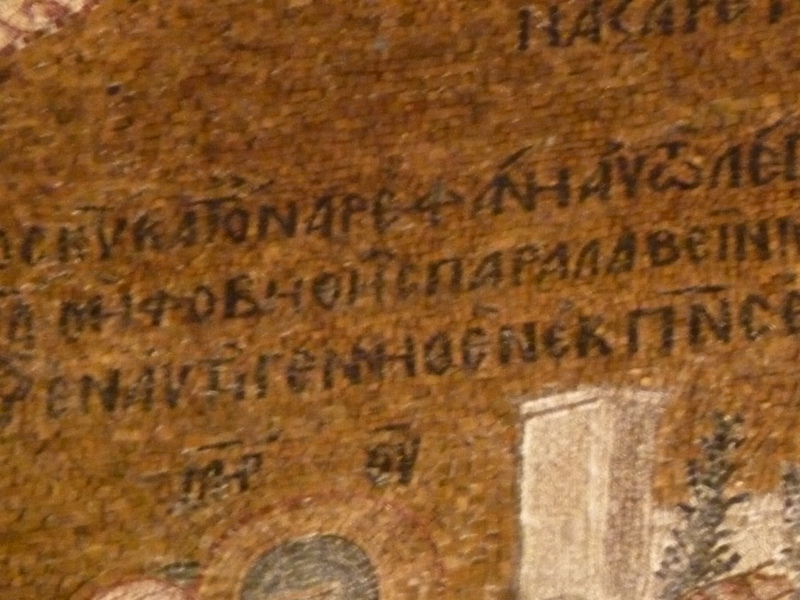 ΝΑΖΑΡΕΤ
ΟϹ ΚΥ ΚΑΤ ΟΝΑΡ ΕΦΑΝΗ ΑΥΤΩ ΛΕΓ
ΜΗ ΦΟΒΗΘΗϹ ΠΑΡΑΛΑΒΕΙΝ
ΓΑΡ ΕΝ ΑΥΤΗ ΓΕΝΝΗΘΕΝ ΕΚ ΠΝϹ Ε
ΜΗΡ ΘΥ